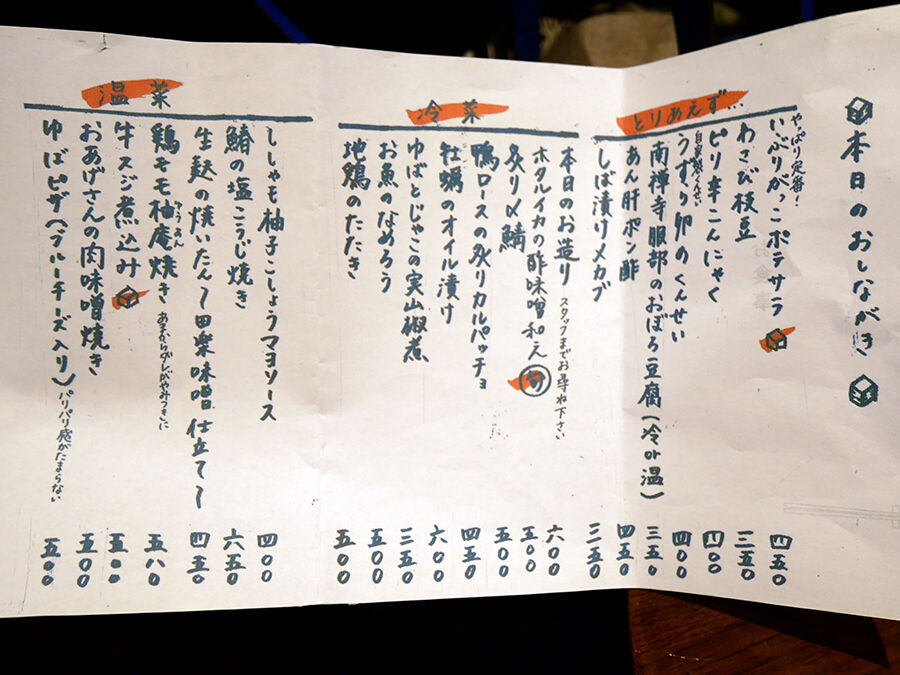 本日のおしながき
とりあえず…
やっぱり定番！
いぶりがっこポテサラ 四五〇
わさび枝豆 三五〇
ピリ辛こんにゃく 四〇〇
自家製くんせい
うずら卵のくんせい 四〇〇
南禅寺服部のおぼろ豆腐（冷or温） 三五〇
あん肝ポン酢 四五〇
しば漬けメカブ 三五〇
冷菜
本日のお造り スタッフまでお尋ね下さい 六〇〇
ホタルイカの酢味噌和え 旬 五〇〇
炙り〆鯖 五〇〇
鴨ロースの炙りカルパッチョ 四五〇
牡蠣のオイル漬け 六〇〇
ゆばとじゃこの実山椒煮 三五〇
お魚のなめろう 五〇〇
地鶏のたたき 五〇〇
温菜
ししゃも柚子こしょうマヨソース 四〇〇
鰆の塩こうじ焼き 六五〇
生麩の焼いたん～田楽味噌仕立て～ 四五〇
鶏モモ柚庵焼き ゆうあん 五八〇
牛スジ煮込み 五〇〇
おあげさんの肉味噌焼き 五〇〇
ゆばピザ（ブルーチーズ入り）パリパリ感がたまらない 五〇〇